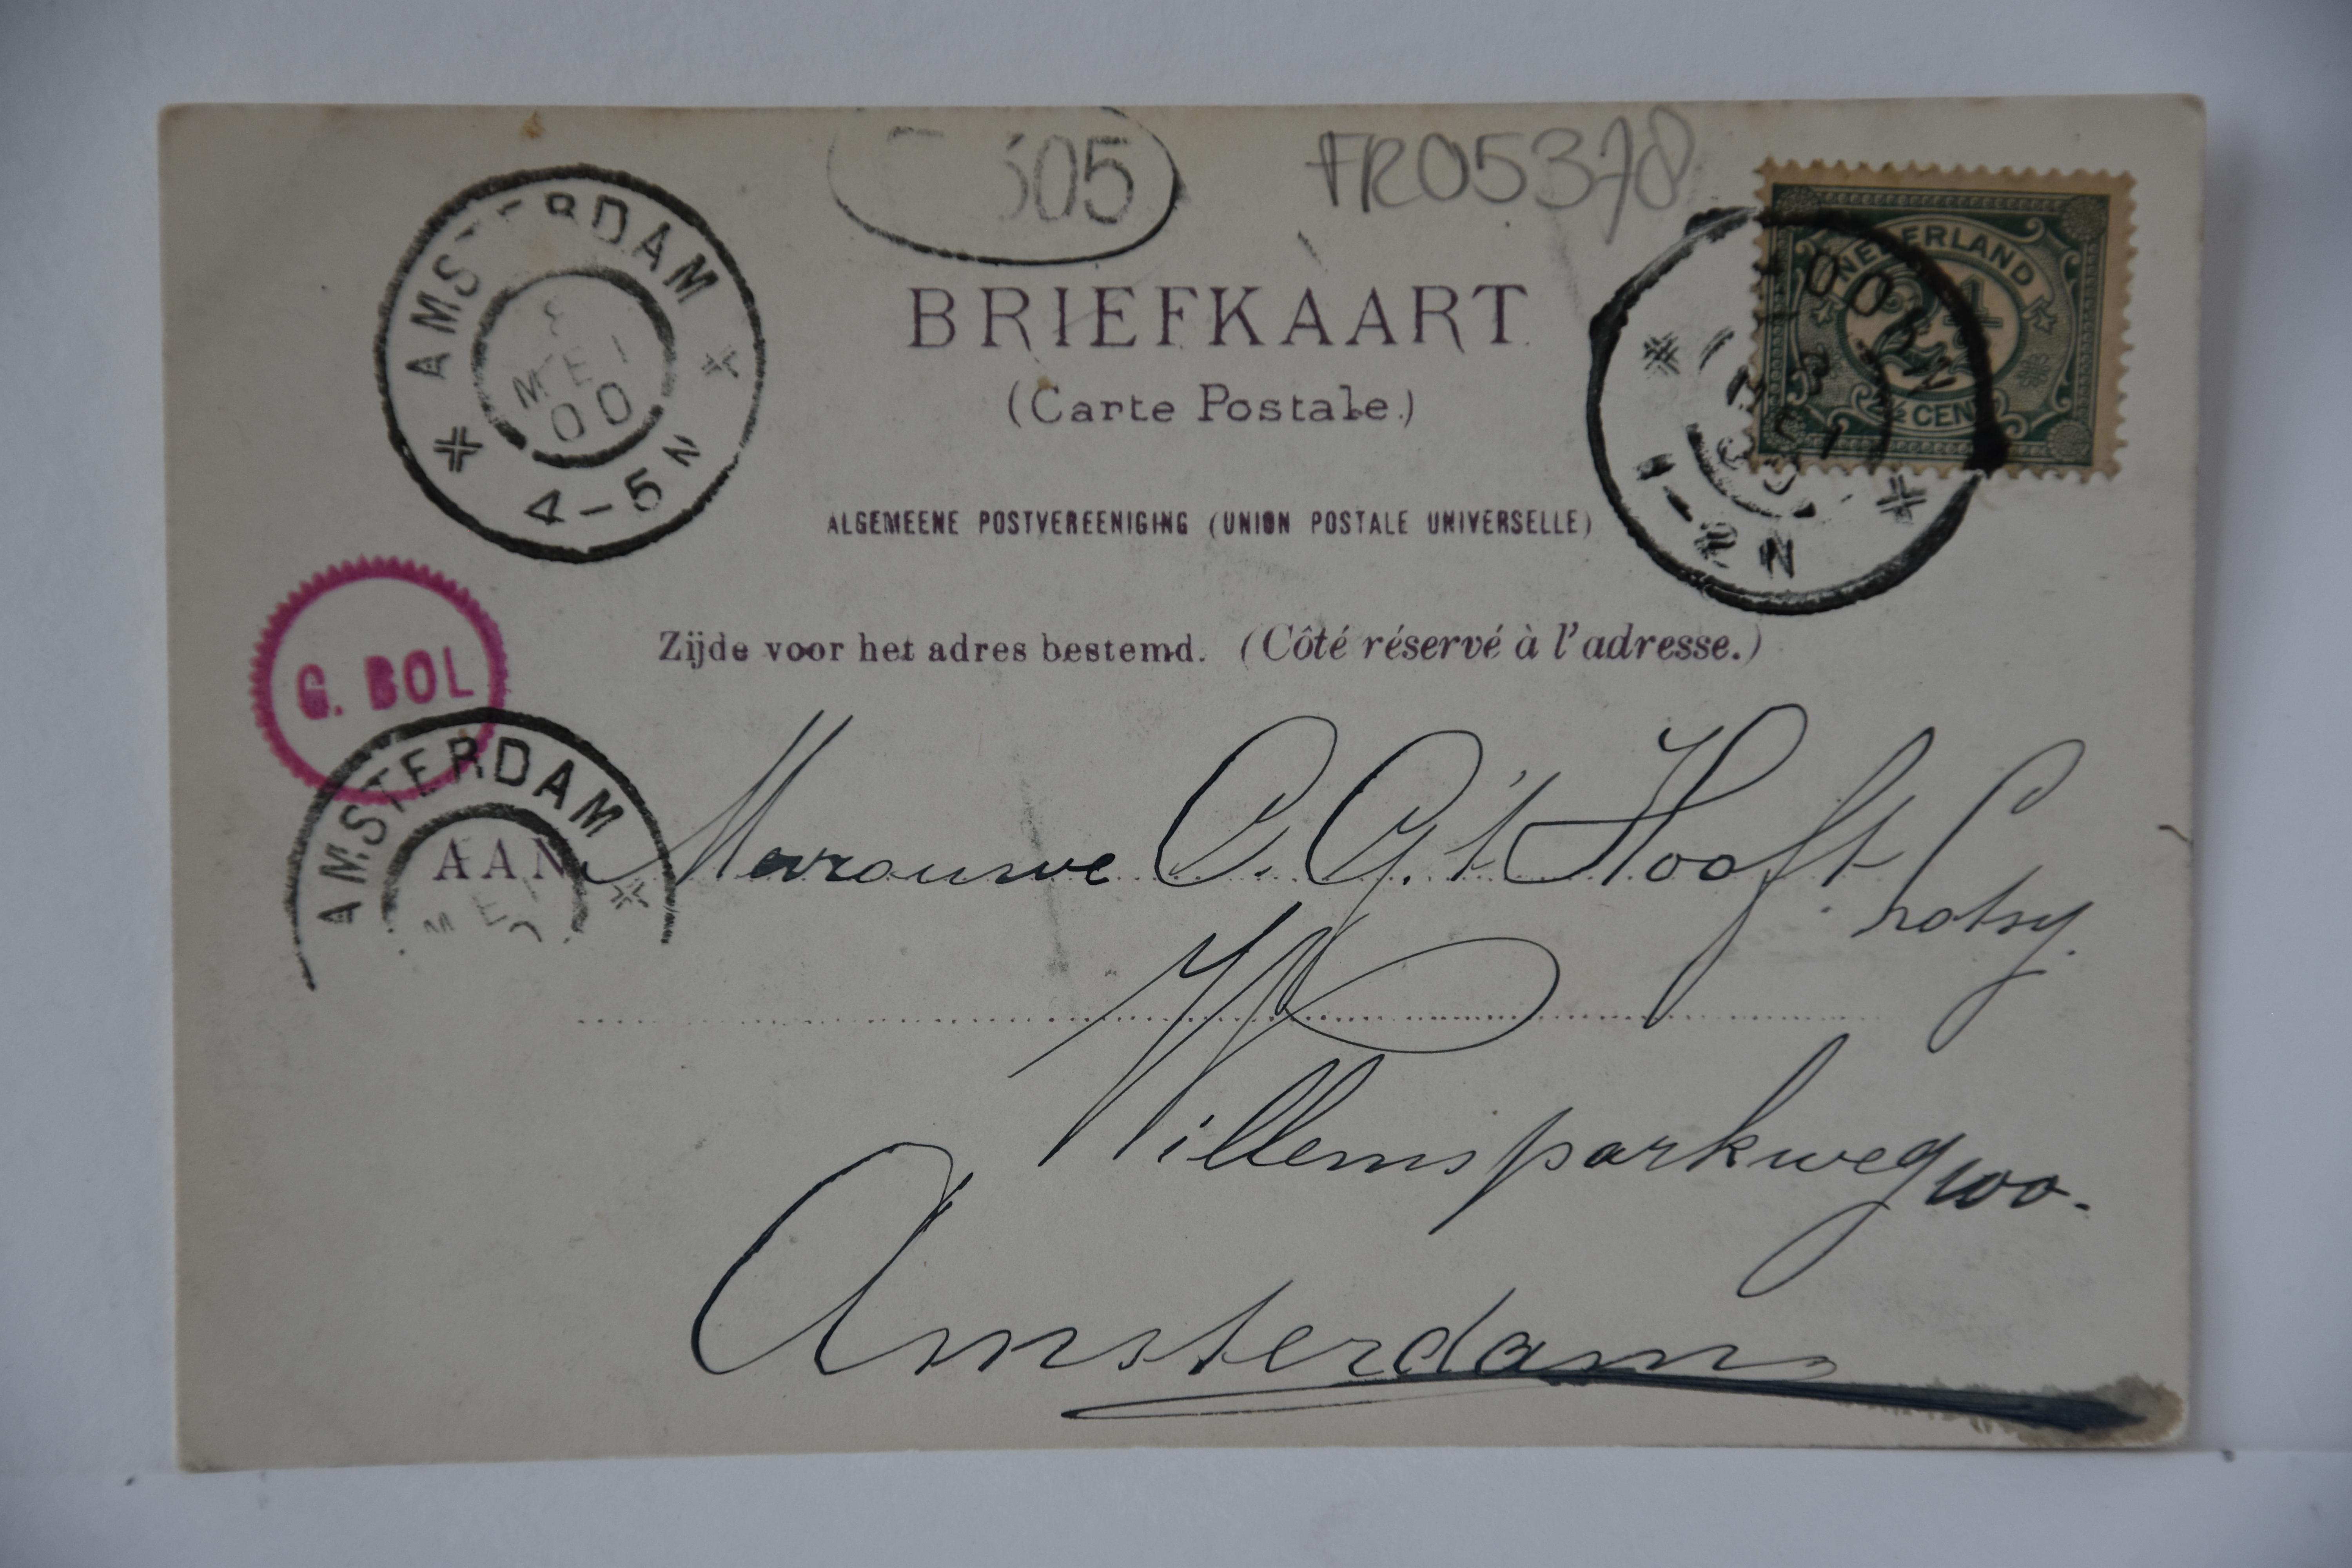 305
FR05378
AMSTERDAM
MEI
00
4-5N
NEDERLAND
2½
CENT
3
MEI
1-2N
BRIEFKAART
(Carte Postale.)
ALGEMEENE POSTVEREENIGING (UNION POSTALE UNIVERSELLE)
Zijde voor het adres bestemd. (Côté réservé à l'adresse.)
G. BOL
AMSTERDAM
MEI
AAN Mevrouwe C. G. 't Hooft
Willemsparkweg 100.
Amsterdam